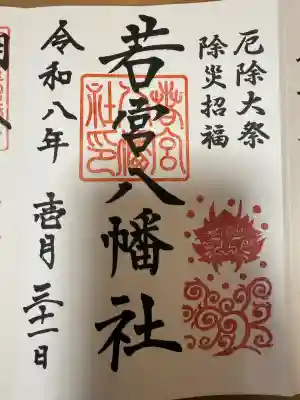 厄除大祭
除災招福
若宮八幡社
若宮八幡社印
令和八年 壱月 三十一日